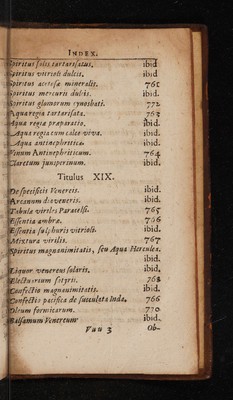 INDEX.
Spiritus salis tartarisatus. ibid
Spiritus vitrioli dulcis. ibid
Spiritus acetosæ mineralis. 761
Spiritus mercurii dulcis. ibid.
Spiritus glomorum cynosbati. 772
Aqua regia tartarisata. 763
Aqua regia præparatio. ibid.
Aqua regia cum calce viva. ibid.
Aqua antinephritica. ibid.
Vinum Antinephriticum. 764
Claretum juniperinum. ibid.
Titulus XIX.
De specificis Venereis. ibid.
Arcanum diavenereis. ibid.
Tabula virilis Paracelsi. 765
Essentia ambræ. 766
Essentia sulphuris vitrioli. ibid.
Mixtura virilis. 767
Spiritus magnanimitatis, seu Aqua Herculea,
ibid.
Liquor venereus solaris. ibid.
Electuarium satyrii. 768
Confectio magnanimitatis. ibid.
Confectio pacifica de succulata Inda. 766
Oleum formicarum. 770
Balsamum Venereum ibid.
Fuu 3 Ob-